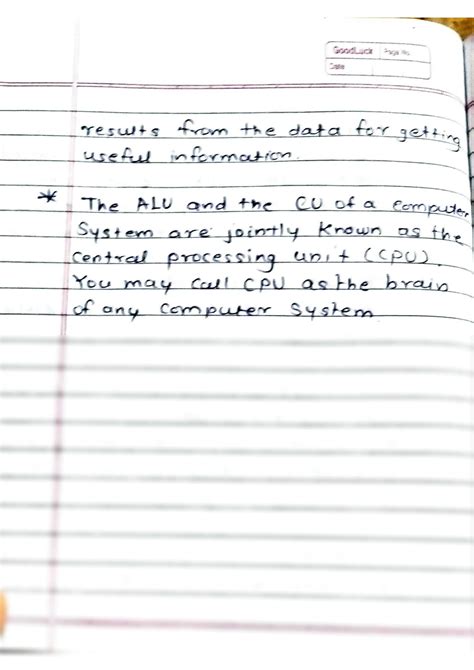 GoodLuck Page No.
Date
results from the data for getting
useful information.
* The ALU and the CU of a computer
System are jointly known as the
central processing unit (CPU).
You may call CPU as the brain
of any computer system